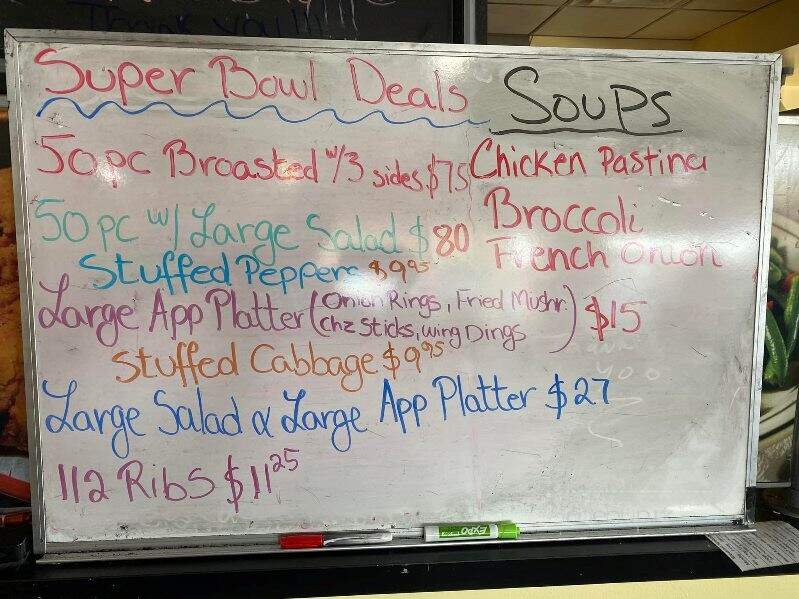 Thank you!!!
Super Bowl Deals
50pc Broasted w/3 sides $75
50pc w/ Large Salad $80
Stuffed Peppers $9.95
Large App Platter (Onion Rings, Fried Mushr. Chz Sticks, Wing Dings) $15
Stuffed Cabbage $9.95
Large Salad & Large App Platter $27
1/2 Ribs $11.25
Soups
Chicken Pastina
Broccoli
French Onion
EXPO